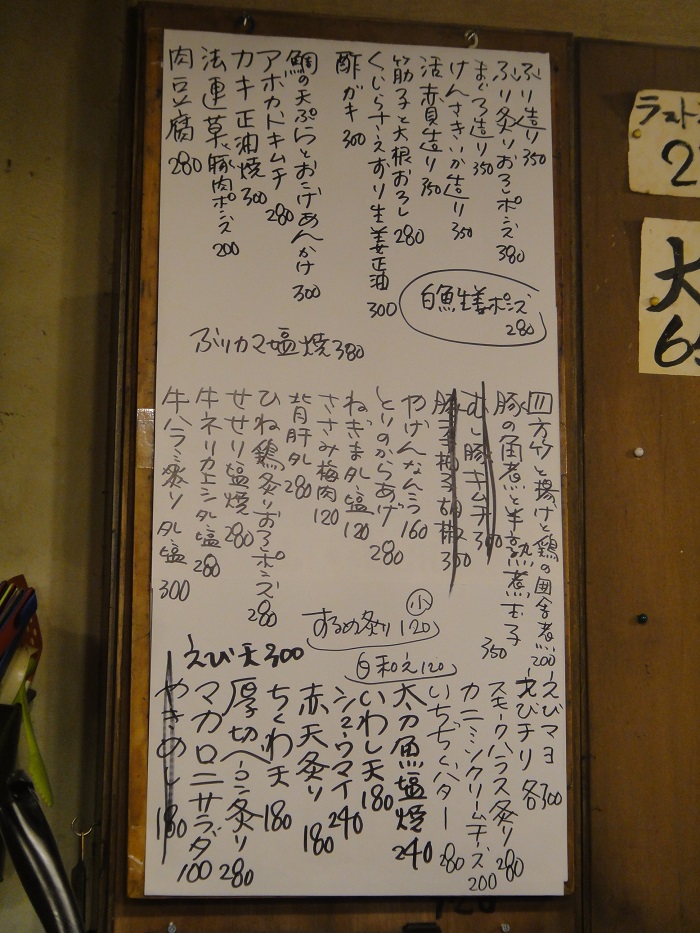 ぶり造り 350
ぶり炙りおろしポン酢 380
まぐろ造り 350
けんさきいか造り 350
活赤貝造り 350
筋子と大根おろし 280
くじらさえずり生姜正油 300
酢ガキ 300
鯛の天ぷらとおこげあんかけ 300
アボカドキムチ 280
カキ正油焼 300
法連草と豚肉ポンズ 200
肉豆腐 280
白魚生姜ポンズ 280
ぶりカマ塩焼 380
四方竹と揚げと鶏の田舎煮 200
豚の角煮と半熟煮玉子 350
むし豚キムチ 300
胡椒 300
やげんなんこつ 160
とりのからあげ 280
ねぎまタレ塩 120
ささみ梅肉 120
背肝タレ 280
ひね鶏炙りおろしポンズ 280
せせり塩焼 280
牛ネリカエシタレ塩 280
牛ハラミ炙りタレ塩 300
するめ炙り 小 120
白和え 120
えび天 300
えびマヨ
えびチリ 各300
スモークハラス炙り 280
カニミソクリームチーズ 200
いちぢくバター 280
太刀魚塩焼 240
いわし天 180
シュウマイ 240
赤天炙り 180
ちくわ天 180
厚切ベーコン炙り 280
マカロニサラダ 100
やきめし 180
ラスト
2
大
6